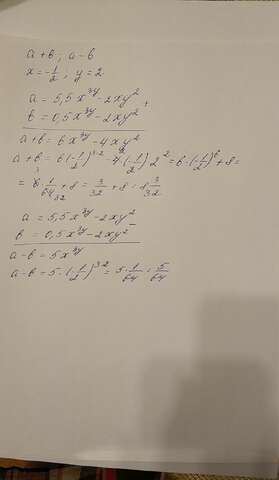 a+b; a-b
x=-1/2; y=2
a=5,5x^3y-2xy^2 +
b=0,5x^3y-2xy^2
a+b=6x^3y-4xy^2
a+b=6(-1/2)^3·2-4(-1/2)2^2=6·(-1/2)^6+8=
=6·1/64+8=3/32+8=8 3/32
a=5,5x^3y-2xy^2
b=0,5x^3y-2xy^2 -
a-b=5x^3y
a-b=5·(-1/2)^3·2=5·1/64=5/64